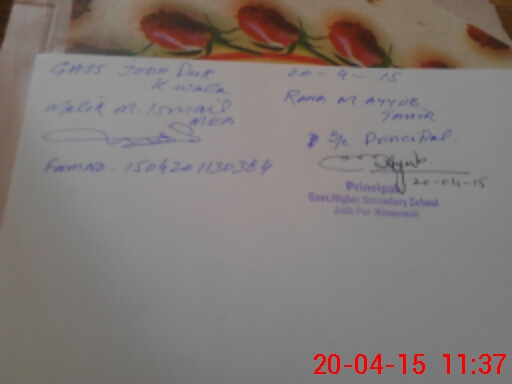 GHSS JODH PUR
K wala
Malik M. Ismail
MEA
Form No. 1504201130364
20-4-15
RANA M AYYUB
TAHIR
S/c Principal.
20-04-15
Principal
Govt. Higher Secondary School
Jodh Pur
20-04-15 11:37